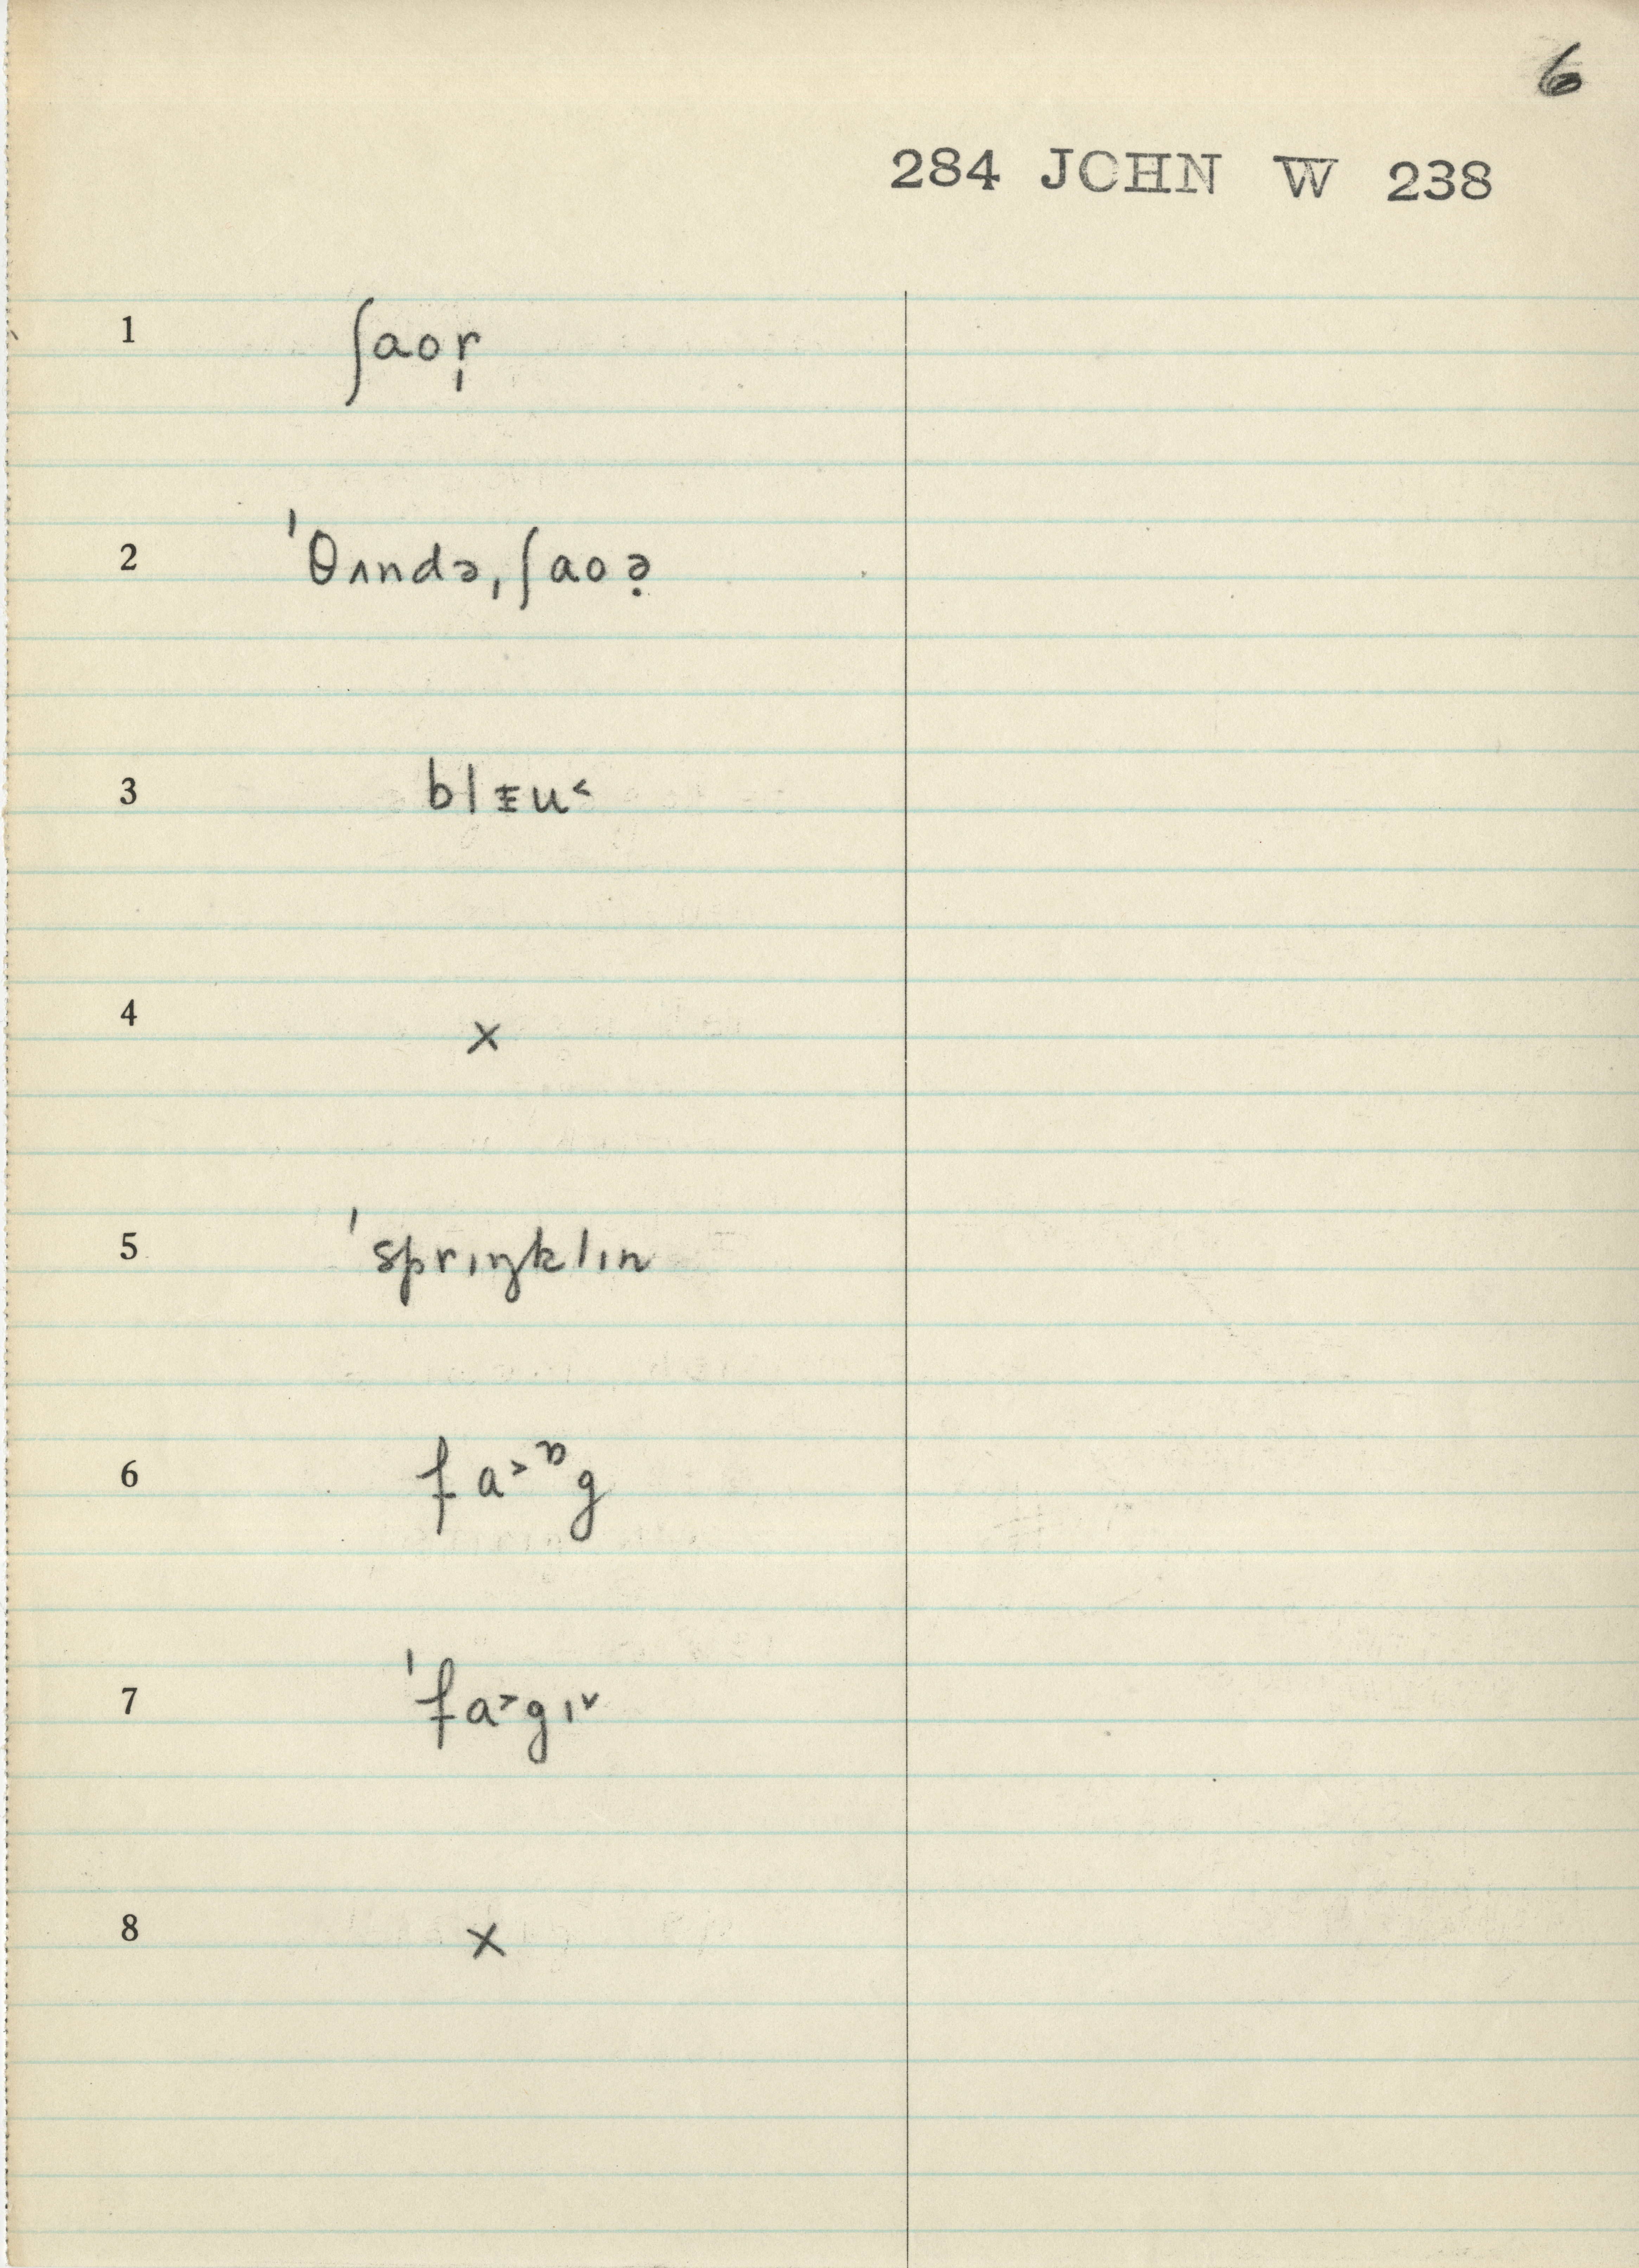 6
284 JOHN W 238
1 ʃaor̩
2 ˈθʌndə,ʃaoə̣
3 blᵻu˂
4 x
5 ˈsprɪŋklɪn
6 fa˃ᶛg
7 ˈfa˃gɪ˅
8 x